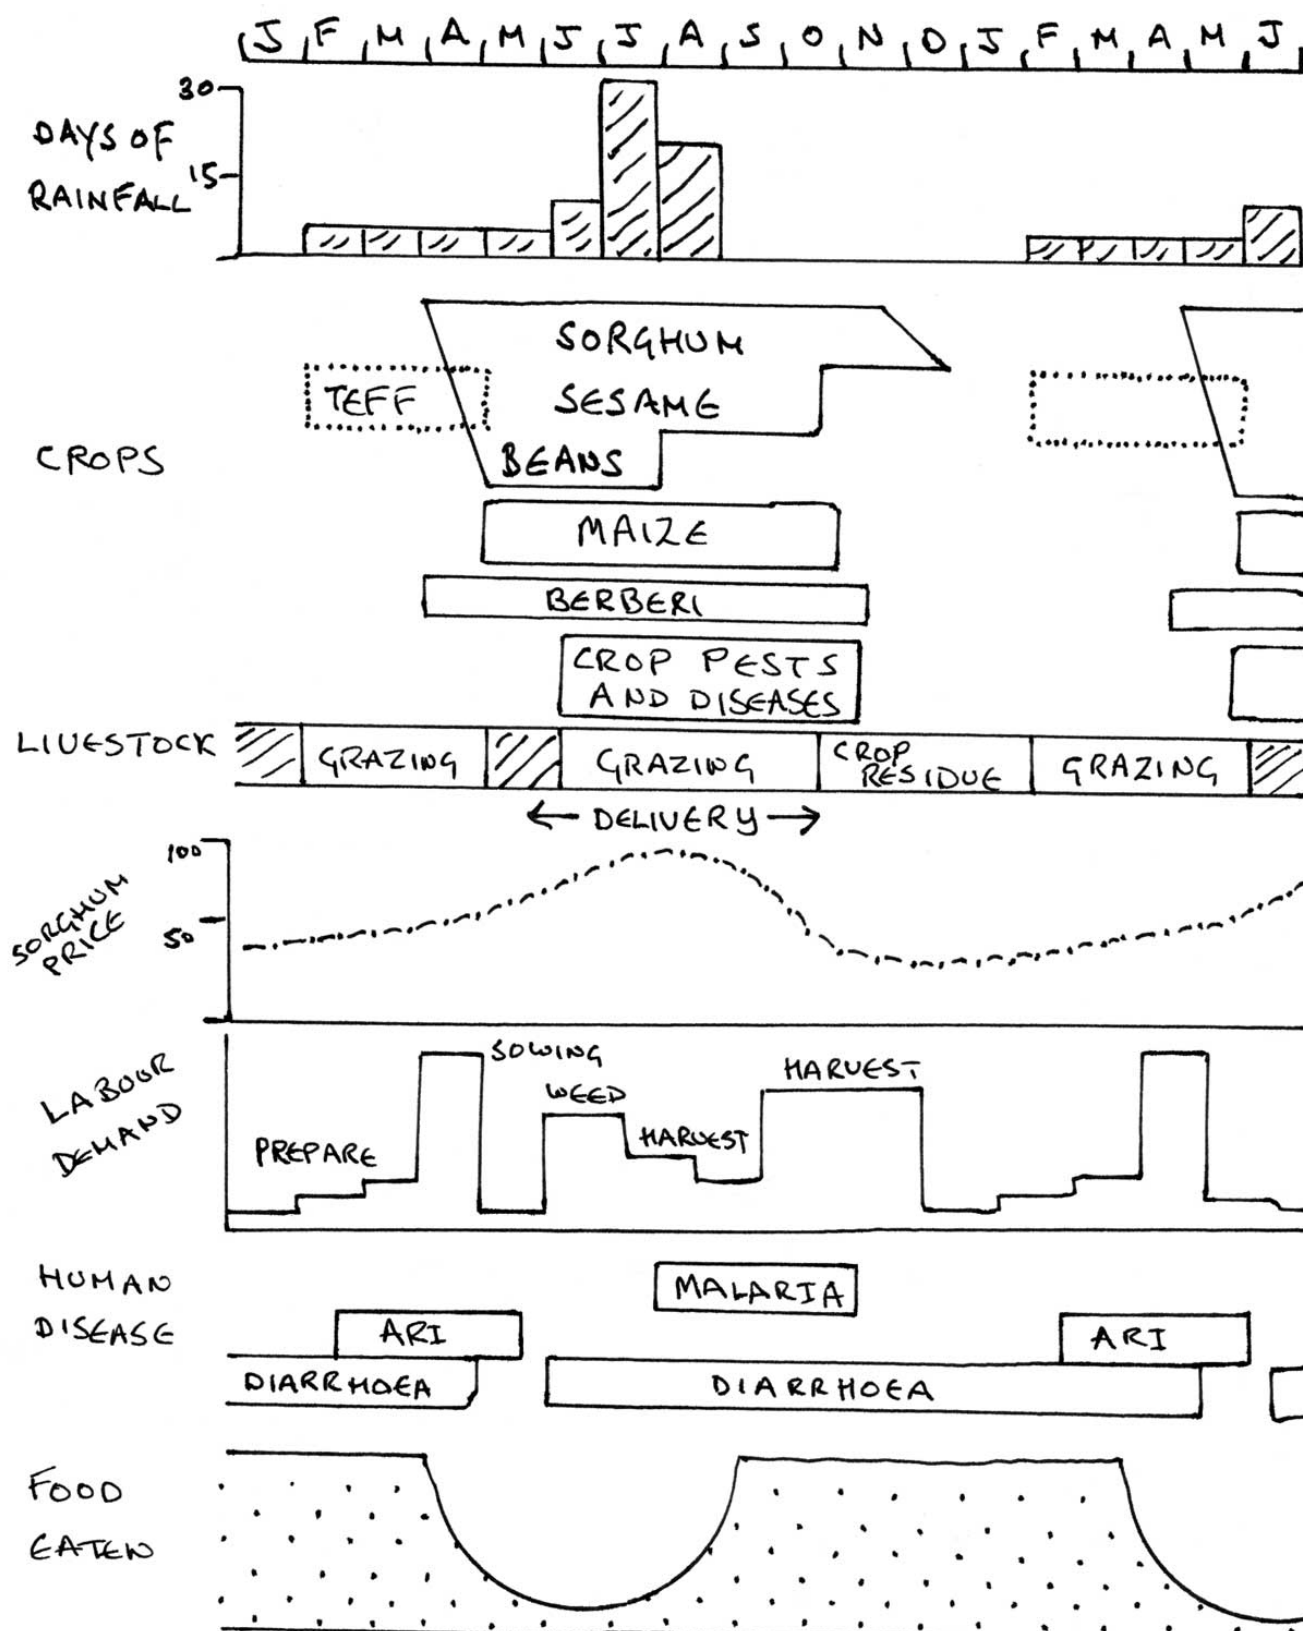 J F M A M J J A S O N D J F M A M J
30
DAYS OF
15
RAINFALL
SORGHUM
TEFF
SESAME
CROPS
BEANS
MAIZE
BERBERI
CROP PESTS
AND DISEASES
LIVESTOCK
GRAZING
GRAZING
CROP
RESIDUE
GRAZING
← DELIVERY →
100
SORGHUM
PRICE
50
LABOUR
DEMAND
SOWING
HARVEST
WEED
HARVEST
PREPARE
HUMAN
DISEASE
MALARIA
ARI
ARI
DIARRHOEA
DIARRHOEA
FOOD
EATEN